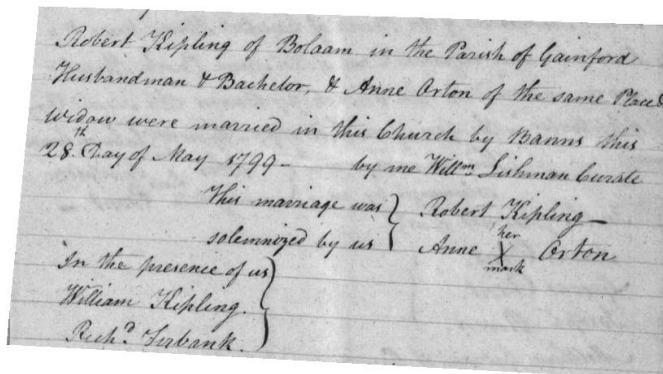 Robert Kipling of Bolaam in the Parish of Gainford
Husbandman & Bachelor, & Anne Orton of the same Place
Widow were married in this Church by Banns this
28.th Day of May 1799 - by me Willm Lishman Curate
This marriage was } Robert Kipling
solemnized by us } Anne her X mark Orton
In the presence of us
William Kipling.
Richd. Firbank.